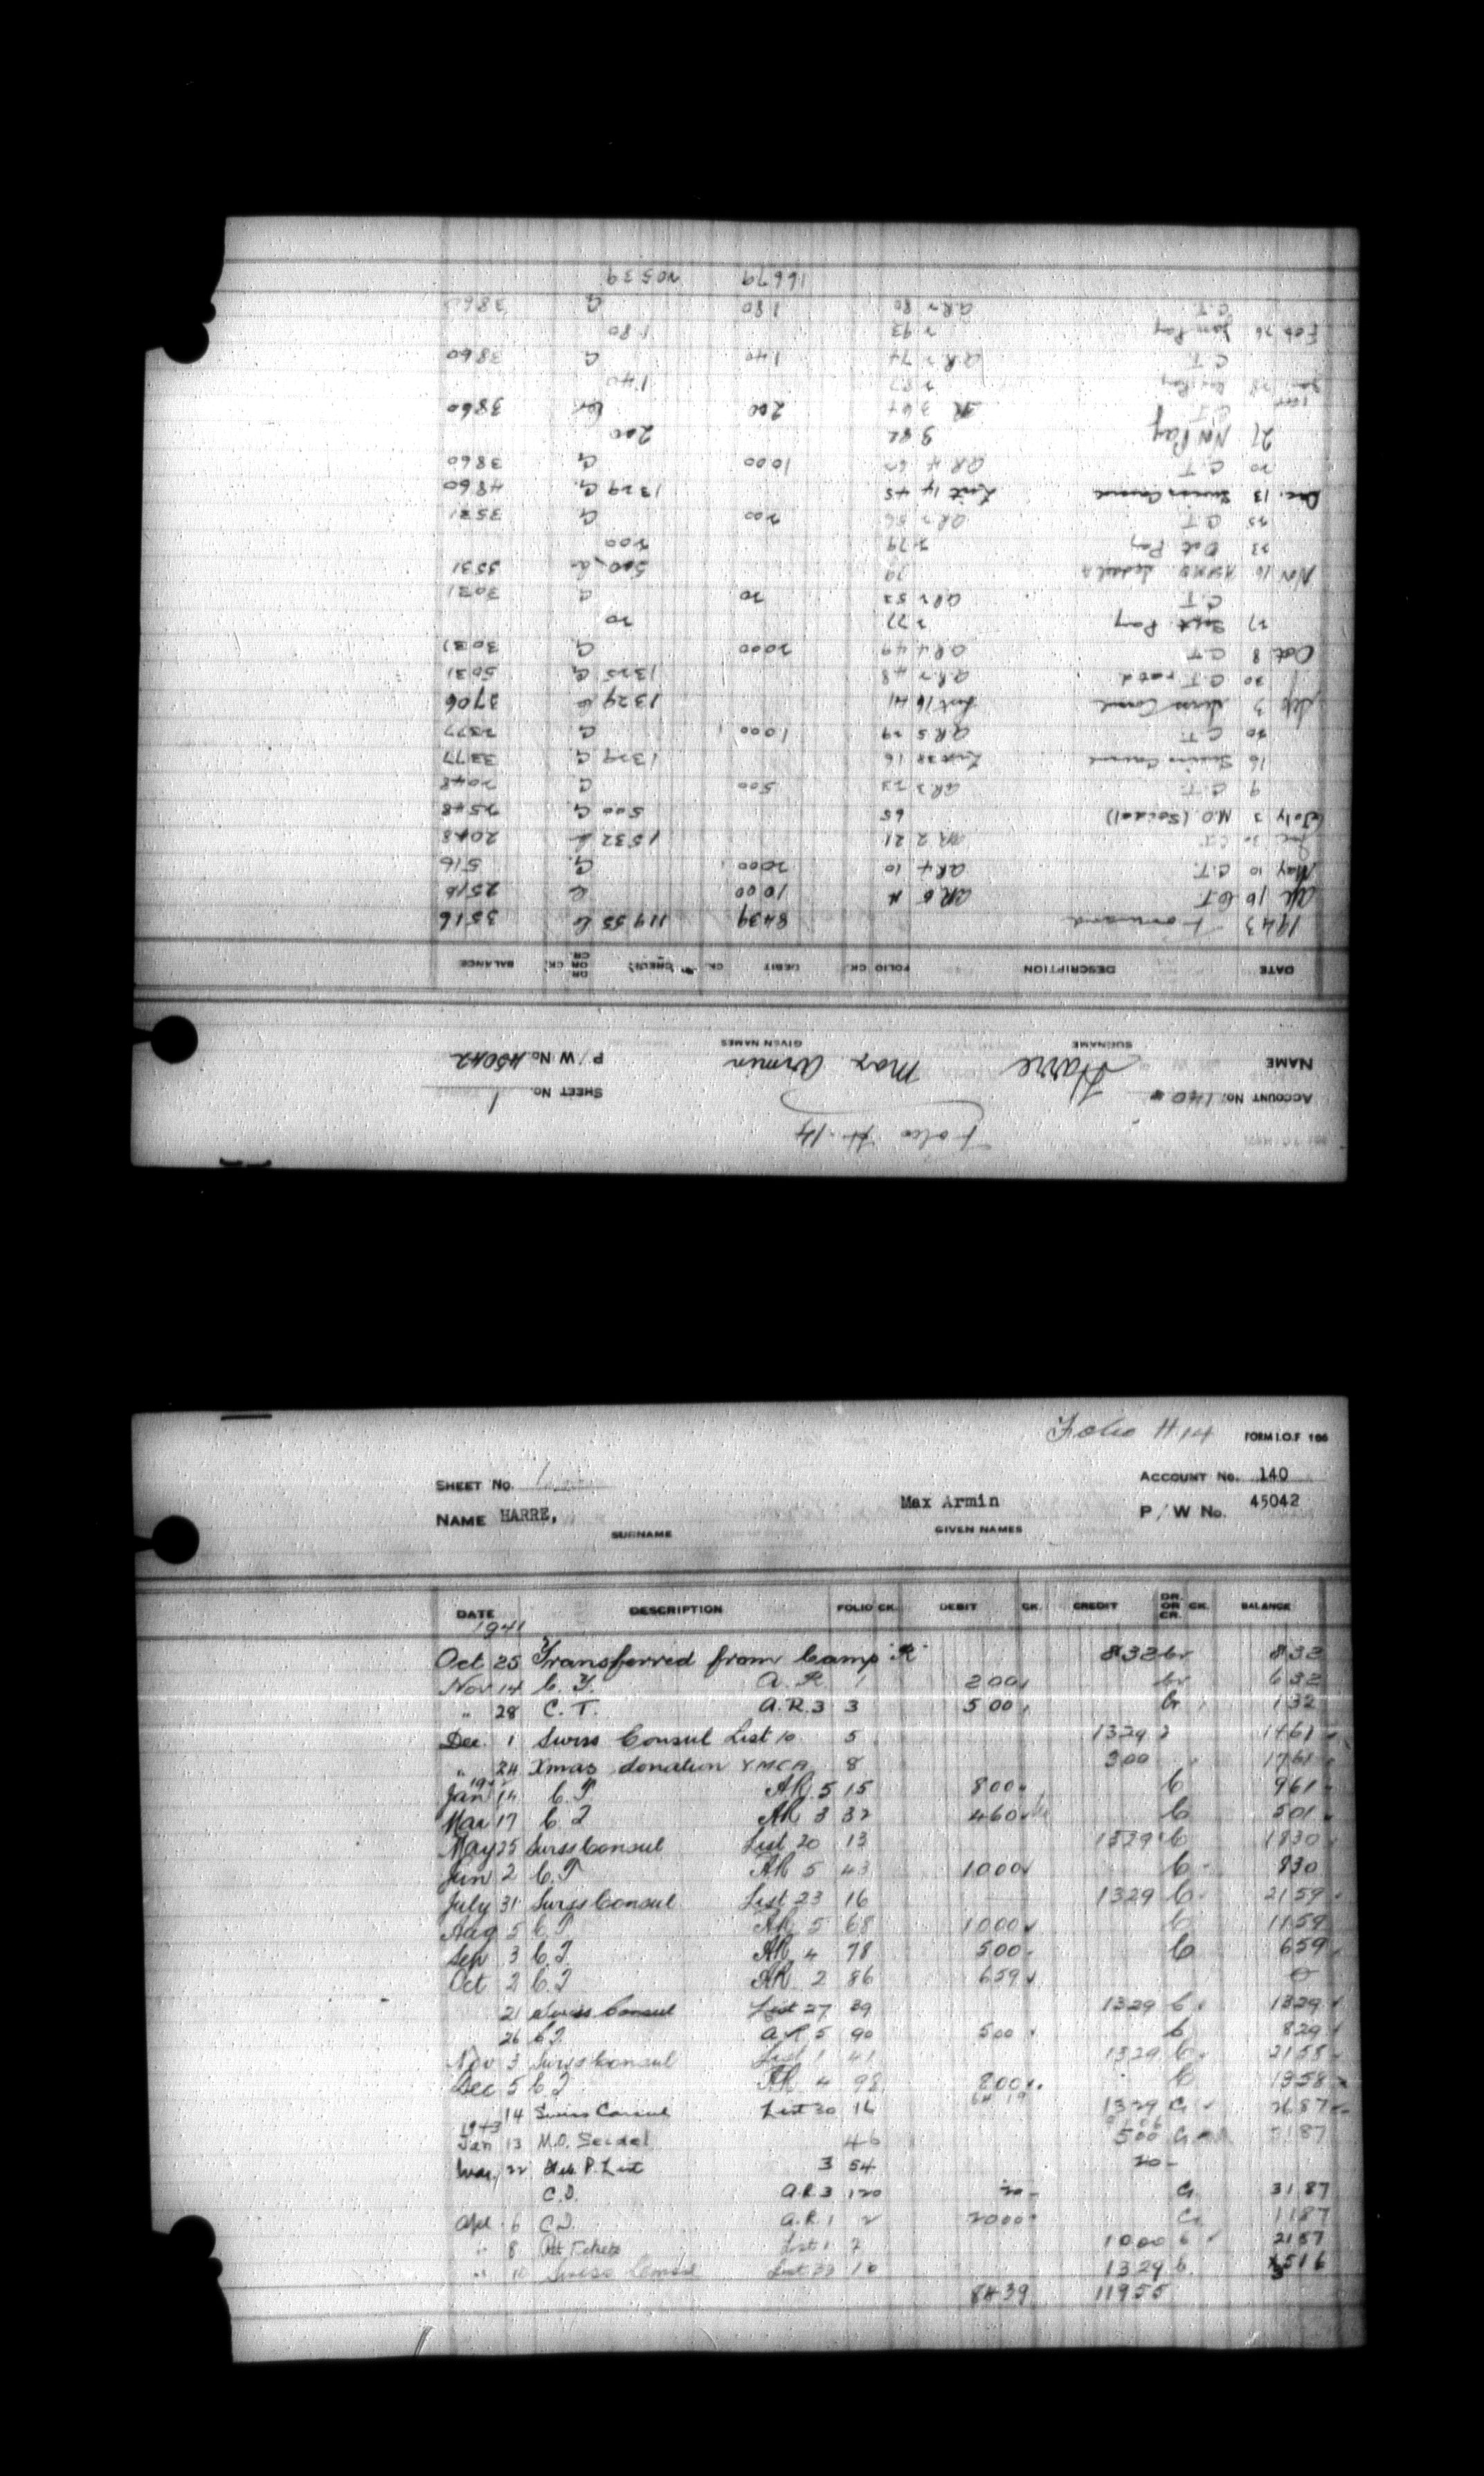 NO539 16679
C.T. A.R. 2 80 180 Cr 3860
Feb 26 Jan Pay 2 93 180
C.T. A.R. 2 74 140 Cr 3860
Jan 28 Pay 2 87 140
C.T. R 3 64 200 Cr 3860
27 Nov Pay 3 82 200
20 C.T. A.R. 4 62 1000 Cr 3860
Dec. 13 Swiss Consul List 14 45 1329 Cr 4860
25 C.T. A.R. 2 56 200 Cr 3531
23 Oct Pay 2 79 200
Nov 16 Seidel 70 500 Cr 3531
C.T. A.R. 2 52 20 Cr 3031
27 Sept. Pay 2 77 20
Oct. 8 C.T. A.R. 4 49 2000 Cr 3031
30 C.T. ret'd A.R. 2 48 1325 Cr 5031
Sep 3 Swiss Consul List 16 41 1329 Cr 3706
20 C.T. A.R. 5 29 1000 Cr 2377
16 Swiss Consul List 38 16 1329 Cr 3377
9 C.T. A.R. 3 23 500 Cr 2048
July 2 M.O. (Seidel) 65 500 Cr 2548
30 C.T. AR 2 21 1532 Cr 2048
May 10 C.T. A.R. 4 10 2000 Cr 516
Ap 16 C.T. AR 5 4 1000 Cr 2516
1943 Forward 8439 11955 Cr 3516
DATE DESCRIPTION FOLIO CK. DEBIT CK. CREDIT DR. OR CR. CK. BALANCE
SURNAME GIVEN NAMES
NAME Harre Max Armin P/W No. 45042
ACCOUNT No. 140 SHEET No. 1
Folio H-14
Folio H 14 FORM I.O.F 166
SHEET No. 1 ACCOUNT No. 140
NAME HARRE, Max Armin P/W No. 45042
SURNAME GIVEN NAMES
DATE DESCRIPTION FOLIO CK. DEBIT CK. CREDIT DR. OR CR. CK. BALANCE
1941
Oct 25 Transferred from Camp "R" 832 Cr 832
Nov 14 C.T. A.R. 1 200 Cr 632
" 28 C.T. A.R.3 3 500 Cr 132
Dec. 1 Swiss Consul List 10 5 1329 1461
" 24 Xmas donation YMCA 8 300 1761
Jan 14 C.T. AR 5 15 800 C 961
Mar 17 C.T. AR 3 32 460 C 501
May 25 Swiss Consul List 20 13 1329 C 1830
Jun 2 C.T AR 5 43 1000 C 830
July 31 Swiss Consul List 23 16 1329 C 2159
Aug 5 C.T AR 5 68 1000 C 1159
Sep 3 C.T. AR 4 78 500 C 659
Oct 2 C.T AR 2 86 659 0
21 Swiss Consul List 27 39 1329 C 1329
26 C.T. A.R 5 90 500 C 829
Nov 3 Swiss Consul List 1 41 1329 C 2158
Dec 5 C.T AR 4 98 800 C 1358
14 Swiss Consul List 30 16 1329 Cr 2687
1943
Jan 13 M.O. Seidel 46 500 Cr 3187
Mar 22 Feb. P. List 3 54 20 -
C.D. A.R.3 120 20 - Cr 3187
Apl 6 C.T. A.R.1 2 2000 Cr 1187
" 8 List 1 7 1000 C 2187
" 10 Swiss Consul List 33 10 1329 C 3516
8439 11955